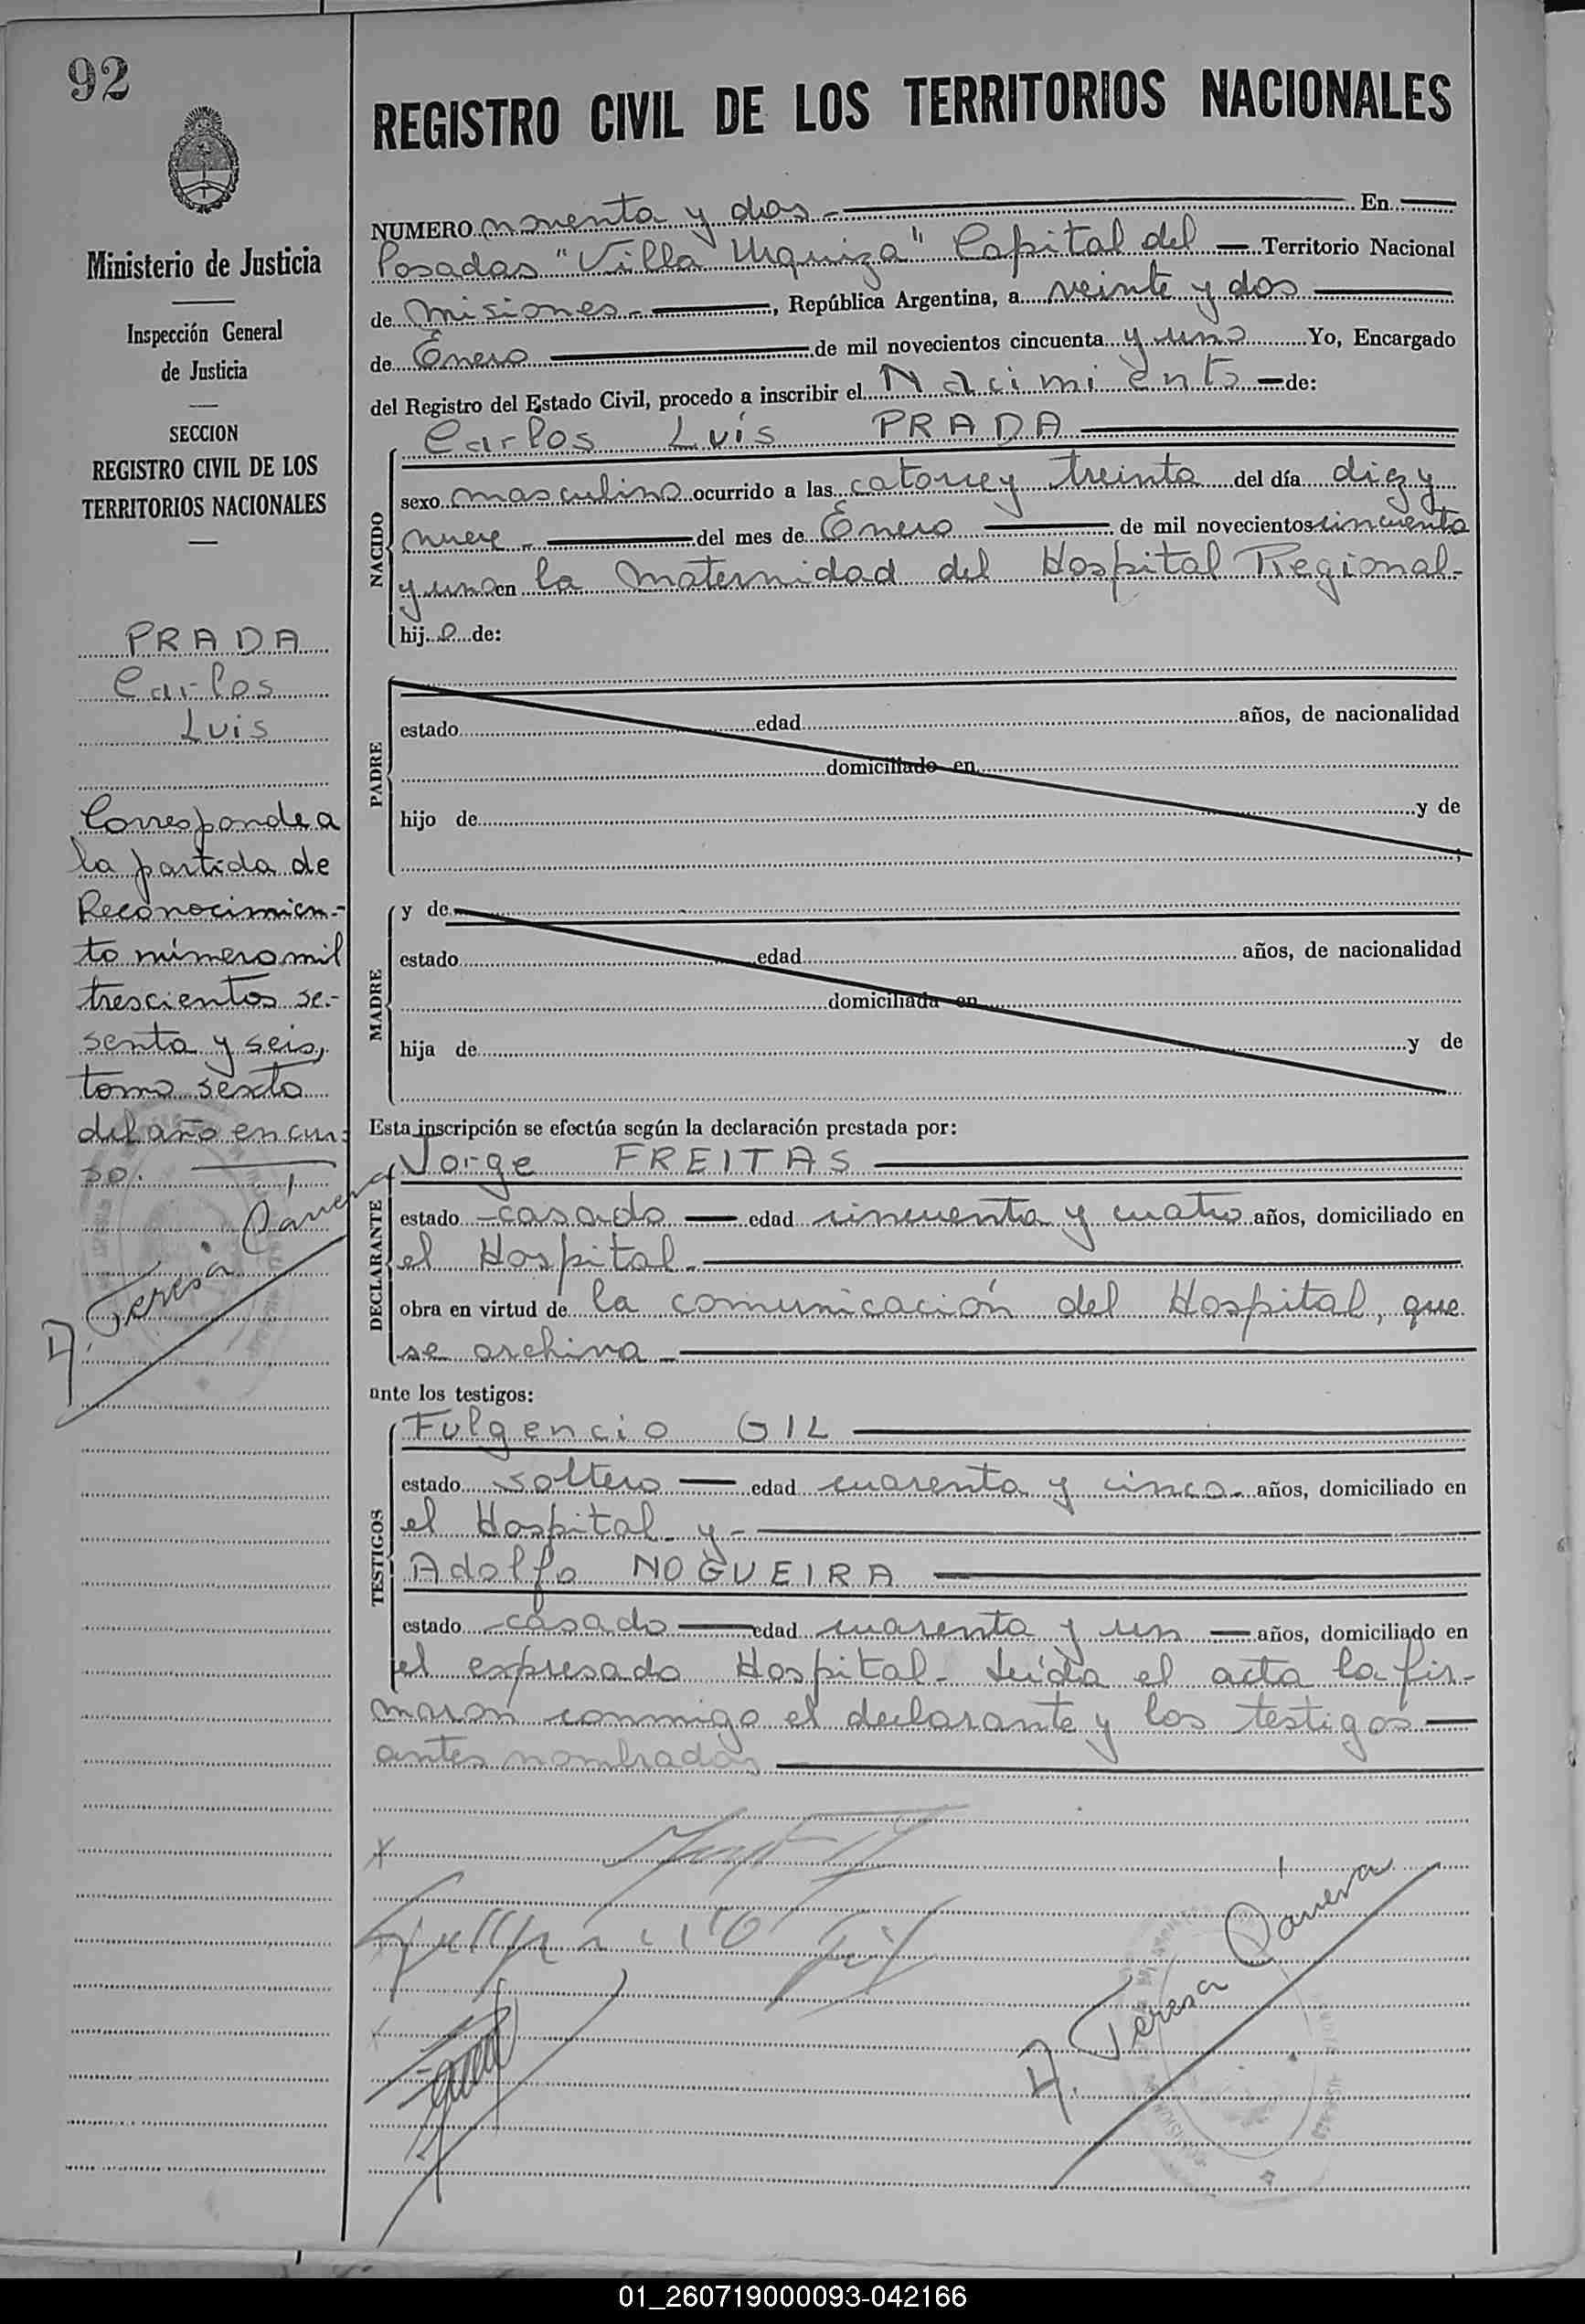 92
Ministerio de Justicia
Inspección General
de Justicia
SECCION
REGISTRO CIVIL DE LOS
TERRITORIOS NACIONALES
PRADA
Carlos
Luis
Corresponde a
la partida de
Reconocimien-
to número mil
trescientos se-
senta y seis,
tomo sexto
del año en cur-
so.
REGISTRO CIVIL DE LOS TERRITORIOS NACIONALES
NUMERO noventa y dos En
Posadas "Villa Urquiza" Capital del Territorio Nacional
de Misiones, República Argentina, a veinte y dos
de Enero de mil novecientos cincuenta y uno Yo, Encargado
del Registro del Estado Civil, procedo a inscribir el Nacimiento de:
NACIDO
Carlos Luis PRADA
sexo masculino ocurrido a las catorce y treinta del día diez y
nueve del mes de Enero de mil novecientos cincuenta
y uno en la Maternidad del Hospital Regional-
hij o de:
PADRE
estado edad años, de nacionalidad
domiciliado en
hijo de y de
MADRE
y de
estado edad años, de nacionalidad
domiciliada en
hija de y de
Esta inscripción se efectúa según la declaración prestada por:
DECLARANTE
Jorge FREITAS
estado casado edad cincuenta y cuatro años, domiciliado en
el Hospital
obra en virtud de la comunicación del Hospital, que
se archiva
ante los testigos:
TESTIGOS
Fulgencio GIL
estado soltero edad cuarenta y cinco años, domiciliado en
el Hospital y
Adolfo NOGUEIRA
estado casado edad cuarenta y un años, domiciliado en
el expresado Hospital- Leída el acta la fir-
maron conmigo el declarante y los testigos
antes nombrados
Gil
A. Teresa
01_260719000093-042166